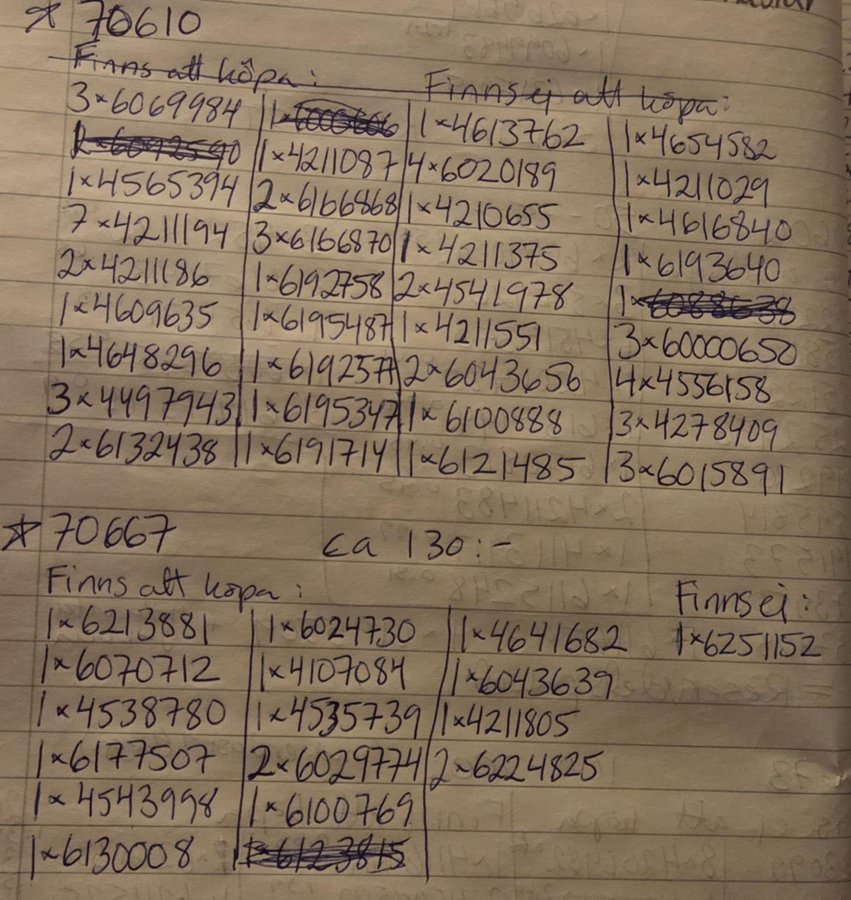 * 70610
Finns att köpa: Finns ej att köpa:
3×6069984 1×4613762 1×4654582
1×4211087 4×6020189 1×4211029
1×4565394 2×6166868 1×4210655 1×4616840
7×4211194 3×6166870 1×4211375 1×6193640
2×4211186 1×6192758 2×4541978
1×4609635 1×6195487 1×4211551 3×60000650
1×4648296 2×6043656 4×4556158
3×4497943 1×6195347 1×6100888 3×4278409
2×6132438 1×6191714 1×6121485 3×6015891
* 70667 ca 130:-
Finns att köpa: Finns ej:
1×6213881 1×6024730 1×4641682 1×6251152
1×6070712 1×4107084 1×6043639
1×4538780 1×4535739 1×4211805
1×6177507 2×6029774 2×6224825
1×4543998 1×6100769
1×6130008 1×6123815